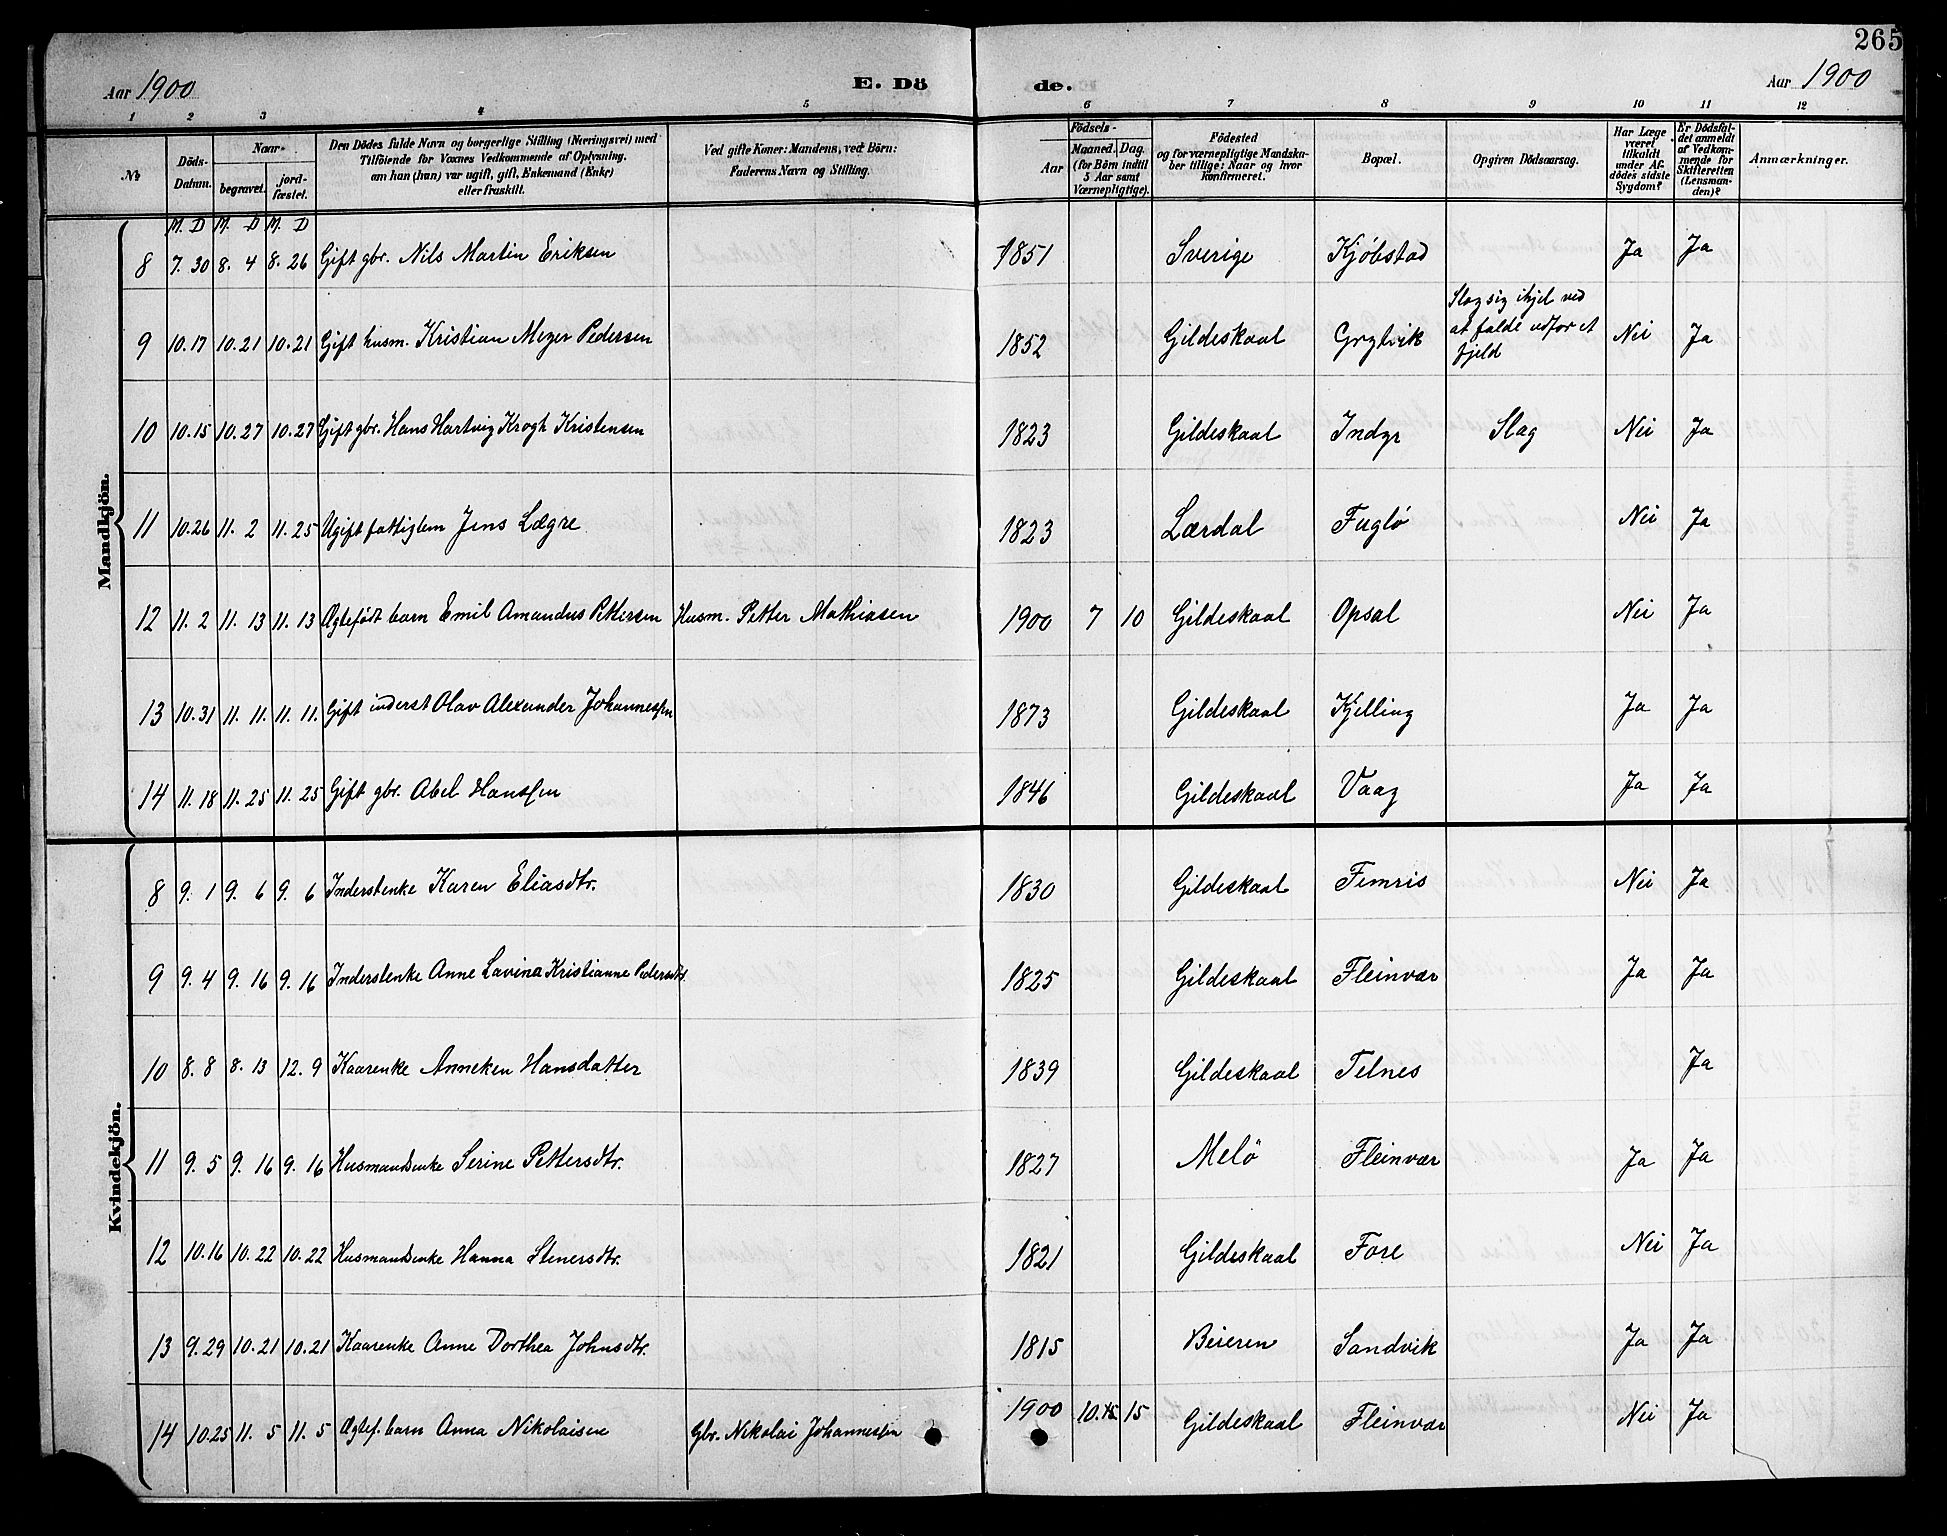 265
Aar 1900 E. Dö de. Aar 1900
1 2 3 4 5 6 7 8 9 10 11 12
№
Döds-Datum.
Naar
begravet.
jordfæstet.
Den Dödes fulde Navn og borgerlige Stilling (Næringsvei) med
Tilföiende for Voxnes Vedkommende af Oplysning,
om han (hun) var ugift, gift, Enkemand (Enke)
eller fraskilt.
Ved gifte Koner: Mandens, ved Börn:
Faderens Navn og Stilling.
Födsels-
Aar
Maaned. Dag.
(for Börn indtil
5 Aar samt
Værnepligtige).
Födested
og for værnepligtige Mandska-
ber tillige: Naar og hvor
konfirmeret.
Bopæl.
Opgiven Dödsaarsag.
Har Læge
været
tilkaldt
under Af-
dödes sidste
Sygdom?
Er Dödsfal-
det anmeldt
af Vedkom-
mende for
Skifteretten
(Lensman-
den)?
Anmærkninger.
M. D M. D M. D
Mandkjön.
8 7. 30 8. 4 8. 26 Gift gbr. Nils Martin Eriksen 1851 Sverige Kjøbstad Ja Ja
9 10.17 10.21 10.21 Gift husm. Kristian Meyer Pedersen 1852 Gildeskaal Grytvik Slog sig ihjel ved
at falde udfor et
fjeld Nei Ja
10 10.15 10.27 10.27 Gift gbr. Hans Hartvig Krogh Kristensen 1823 Gildeskaal Indyr Slag Nei Ja
11 10.26 11. 2 11. 25 Ugift fattiglem Jens Lægre 1823 Lærdal Fuglø Nei Ja
12 11. 2 11. 13 11. 13 Ægtefødt barn Emil Amandus Pettersen Husm. Petter Mathiasen 1900 7 10 Gildeskaal Opsal Nei Ja
13 10.31 11. 11. 11. 11. Gift inderst Olav Alexander Johannessen 1873 Gildeskaal Kjelling Ja Ja
14 11. 18 11. 25 11. 25 Gift gbr. Abel Hanssen 1846 Gildeskaal Vaag Ja Ja
Kvindekjön.
8 9. 1 9. 6 9. 6 Inderstenke Karen Eliasdtr. 1830 Gildeskaal Femris Nei Ja
9 9. 4 9. 16 9. 16 Inderstenke Anne Lavina Kristianne Pedersdtr. 1825 Gildeskaal Fleinvær Ja Ja
10 8. 8 8. 13 12. 9 Kaarenke Anneken Hansdatter 1839 Gildeskaal Telnes Ja
11 9. 5 9. 16 9. 16 Husmandsenke Serine Pettersdtr. 1827 Melö Fleinvær Ja Ja
12 10.16 10. 22 10. 22 Husmandsenke Hanna Stenersdtr. 1821 Gildeskaal Fore Nei Ja
13 9.29 10.21 10.21 Kaarenke Anne Dorthea Johnsdtr. 1815 Beieren Sandvik Ja Ja
14 10.25 11. 5 11. 5 Ægtef. barn Anna Nikolaisen Gbr. Nikolai Johannessen 1900 10. 15 Gildeskaal Fleinvær Nei Ja